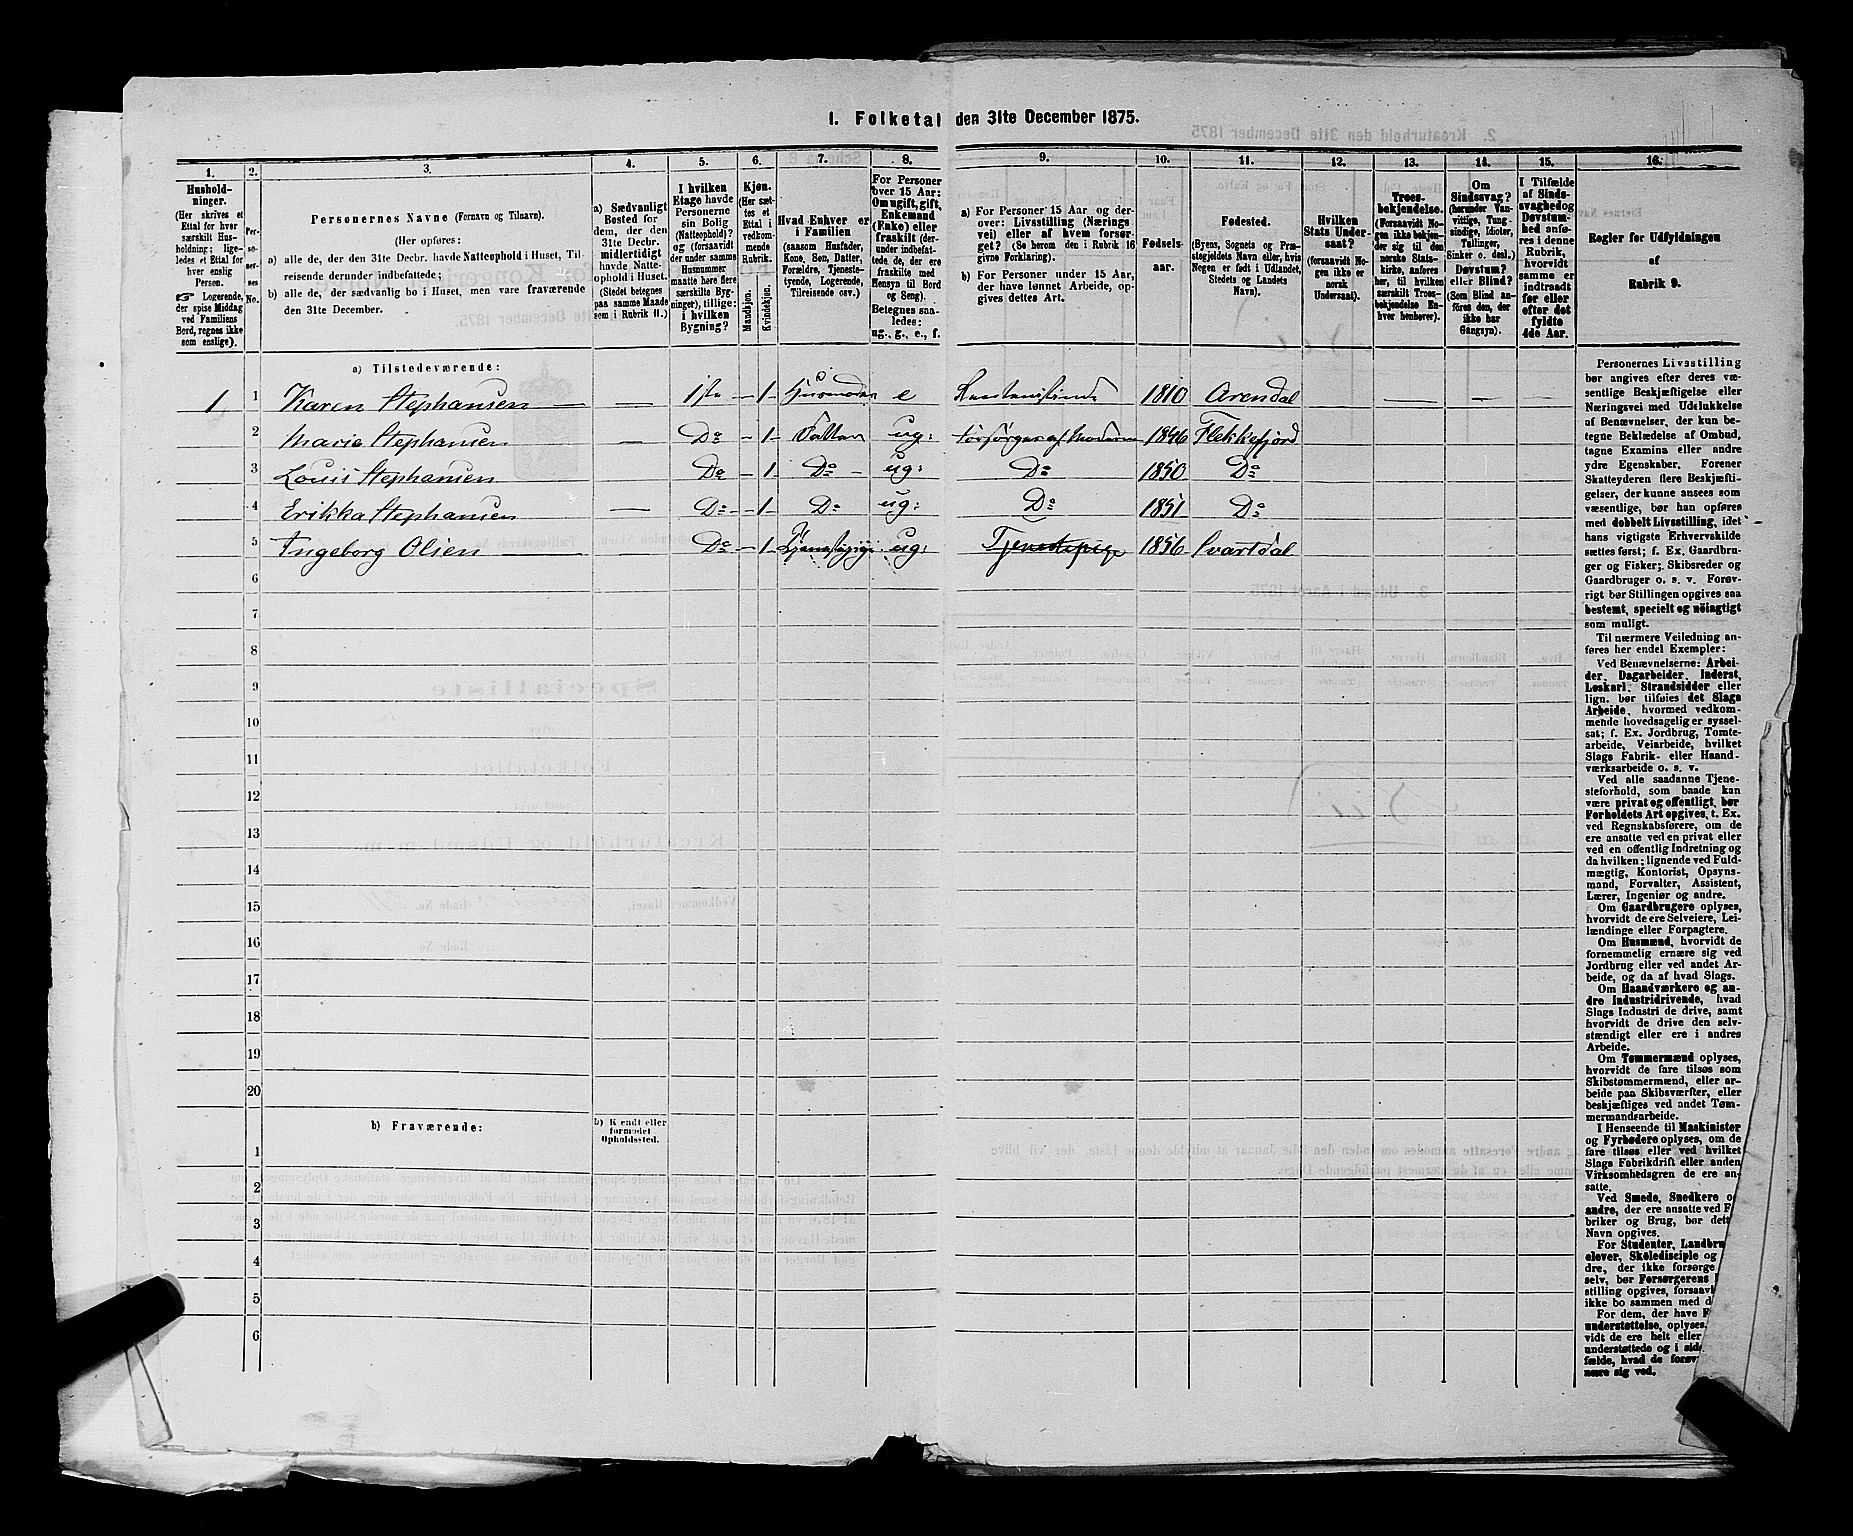 1. Folketal den 31te December 1875.
1. 2. 3. 4. 5. 6. 7. 8. 9. 10. 11. 12. 13. 14. 15. 16.
Hushold-
ninger.
(Her skrives et
Ettal for hver
særskilt Hus-
holdning; lige-
ledes et Ettal for
hver enslig
Person.
☞ Logerende,
der spise Middag
ved Familiens
Bord, regnes ikke
som enslige).
Per-
so-
ner-
nes
No.
Personernes Navne (Fornavn og Tilnavn).
(Her opføres:
a) alle de, der den 31te Decbr. havde Natteophold i Huset, Til-
reisende derunder indbefattede;
b) alle de, der sædvanlig bo i Huset, men vare fraværende
den 31te December.
a) Sædvanligt
Bosted for
dem, der den
31te Decbr.
midlertidigt
havde Natte-
ophold i Huset.
(Stedet betegnes
paa samme Maade
som i Rubrik 11.)
I hvilken
Etage havde
Personerne
sin Bolig
(Natteophold)?
og (forsaavidt
der under samme
Husnummer
maatte høre flere
særskilte Byg-
ninger), tillige:
i hvilken
Bygning?
Kjøn.
(Her sæt-
tes et
Ettal i
vedkom-
mende
Rubrik.
Mandkjøn.
Kvindekjøn.
Hvad Enhver er
i Familien
(saasom Husfader,
Kone, Søn, Datter,
Forældre, Tjeneste-
tyende, Logerende,
Tilreisende osv.)
For Personer
over 15 Aar:
Om ugift, gift,
Enkemand
(Enke) eller
fraskilt (der-
under indbefat-
tede de, der ere
fraskilte med
Hensyn til Bord
og Seng).
Betegnes saa-
ledes:
ug., g., e., f.
a) For Personer 15 Aar og der-
over: Livsstilling (Nærings
vei) eller af hvem forsør-
get? (Se herom den i Rubrik 16
givne Forklaring).
b) For Personer under 15 Aar,
der have lønnet Arbeide, op-
gives dettes Art.
Fødsels-
aar.
Fødested.
(Byens, Sognets og Præ-
stegjeldets Navn eller, hvis
Nogen er født i Udlandet,
Stedets og Landets
Navn).
Hvilken
Stats Under-
saat?
(forsaavidt No-
gen ikke er
norsk
Undersaat).
Troes-
bekjendelse.
(Forsaavidt No-
gen ikke bekjen-
der sig til den
norske Stats-
kirke, anføres
her, til hvilken
særskilt Troes-
bekjendelse En-
hver henhører).
Om
Sindssvag?
(herunder Van-
vittige, Tung-
sindige, Idioter,
Tullinger,
Sinker o. desl.)
Døvstum?
eller Blind?
(Som Blind an-
føres den, der
ikke har
Gangsyn).
I Tilfælde
af Sinds-
svaghed og
Døvstum-
hed anfø-
res i denne
Rubrik,
hvorvidt
samme er
indtraadt
før eller
efter det
fyldte
4de Aar.
Regler for Udfyldningen
af
Rubrik 9.
a) Tilstedeværende:
1 1 Karen Stephansen — — 1ste — 1 Husmoder e 1810 Arendal — — —
2 Marie Stephansen — Do — 1 Datter ug: forsørges af Moderen 1846 Flekkefjord
3 Louis Stephansen Do — 1 Do — ug: Do 1850 Do
4 Erikka Stephansen — Do — 1 Do ug: Do 1851 Do
5 Ingeborg Olsen — Do — 1 Tjenestepige ug: Tjenestepige 1856 Svartdal
6
7
8
9
10
11
12
13
14
15
16
17
18
19
20
b) Fraværende:
b) Kjendt eller
formodet
Opholdssted.
1
2
3
4
5
6
Personernes Livsstilling
bør angives efter deres væ-
sentlige Beskjæftigelse eller
Næringsvei med Udelukkelse
af Benævnelser, der kun be-
tegne Beklædelse af Ombud,
tagne Examina eller andre
ydre Egenskaber. Forener
Skatteyderen flere Beskjæfti-
gelser, der kunne ansees som
væsentlige, bør han opføres
med dobbelt Livsstilling, idet
hans vigtigste Erhvervskilde
sættes først; f. Ex. Gaardbru-
ger og Fisker; Skibsreder og
Gaardbruger o. s. v. Forøv-
rigt bør Stillingen opgives saa
bestemt, specielt og nöiagtigt
som muligt.
Til nærmere Veiledning an-
føres her endel Exempler:
Ved Benævnelserne: Arbei-
der, Dagarbeider, Inderst,
Løskarl, Strandsidder eller
lign. bør tilføies det Slags
Arbeide, hvormed vedkom-
mende hovedsagelig er syssel-
sat; f. Ex. Jordbrug, Tomte-
arbeide, Veiarbeide, hvilket
Slags Fabrik- eller Haand-
værksarbeide o. s. v.
Ved alle saadanne Tjene-
steforhold, som baade kan
være privat og offentligt, bør
Forholdets Art opgives, t. Ex.
ved Regnskabsførere, om de
ere ansatte ved en privat eller
ved en offentlig Indretning og
da hvilken; lignende ved Fuld-
mægtig, Kontorist, Opsyns-
mand, Forvalter, Assistent,
Lærer, Ingeniør og andre.
Om Gaardbrugere oplyses,
hvorvidt de ere Selveiere, Lei-
lændinge eller Forpagtere.
Om Husmænd, hvorvidt de
fornemmelig ernære sig ved
Jordbrug eller ved andet Ar-
beide, og da af hvad Slags.
Om Haandværkere og an-
dre Industridrivende, hvad
Slags Industri de drive, samt
hvorvidt de drive den selv-
stændigt eller ere i andres
Arbeide.
Om Tømmermænd oplyses,
hvorvidt de fare tilsøs som
Skibstømmermænd, eller ar-
beide paa Skibsværfter, eller
beskjæftiges ved andet Tøm-
mermandsarbeide.
I Henseende til Maskinister
og Fyrbødere oplyses, om de
fare tilsøs eller ved hvilket
Slags Fabrikdrift eller anden
Virksomhedsgren de ere an-
satte.
Ved Smede, Snedkere o
andre, der ere ansatte ved F
briker og Brug, bør dett
Navn opgives.
For Studenter, Landbr
elever, Skoledisciple og
dre, der ikke forsørge
selv, bør Forsørgerens
stilling opgives, forsaav
ikke bo sammen med d
For dem, der have F
understøttelse, oplyses,
vidt de ere helt eller
understøttede og i sid
fælde, hvad de forøv
nære sig ved.